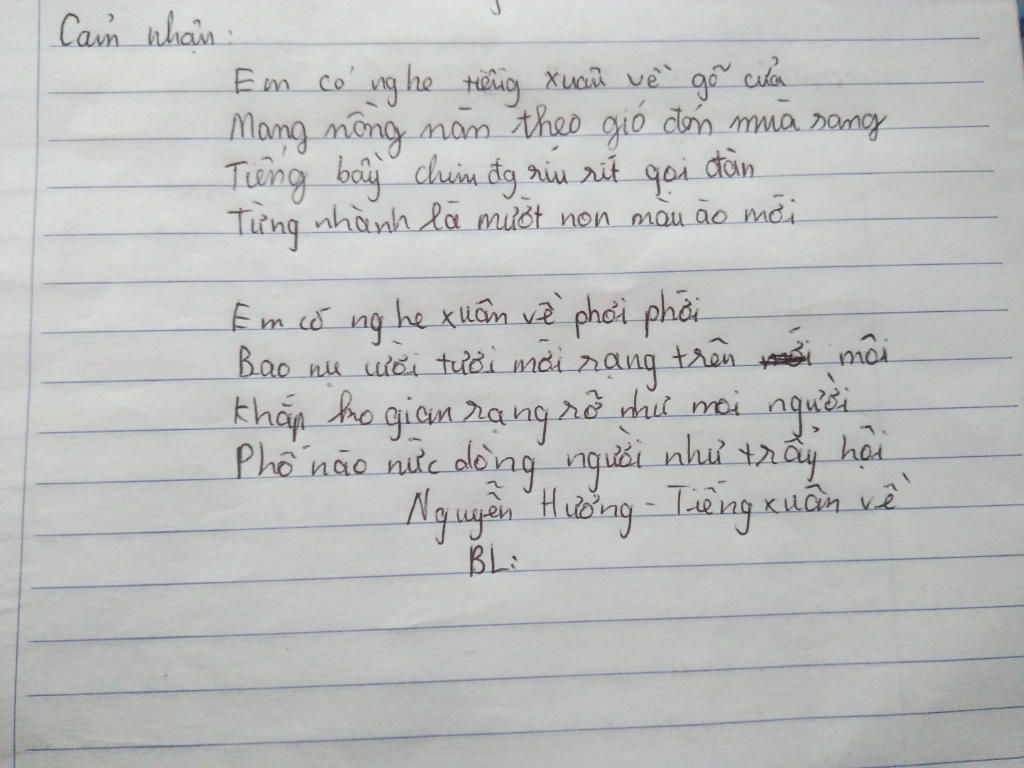 Cảm nhận:
Em có nghe tiếng xuân về gõ cửa
Mang nồng nàn theo gió đón mùa sang
Tiếng bầy chim đg ríu rít gọi đàn
Từng nhành lá mướt non màu áo mới
Em có nghe xuân về phơi phới
Bao nụ cười tươi mới rạng trên môi
Khắp ko gian rạng rỡ như mọi người
Phố náo nức dòng người như trẩy hội
Nguyễn Hưởng - Tiếng xuân về
BL: